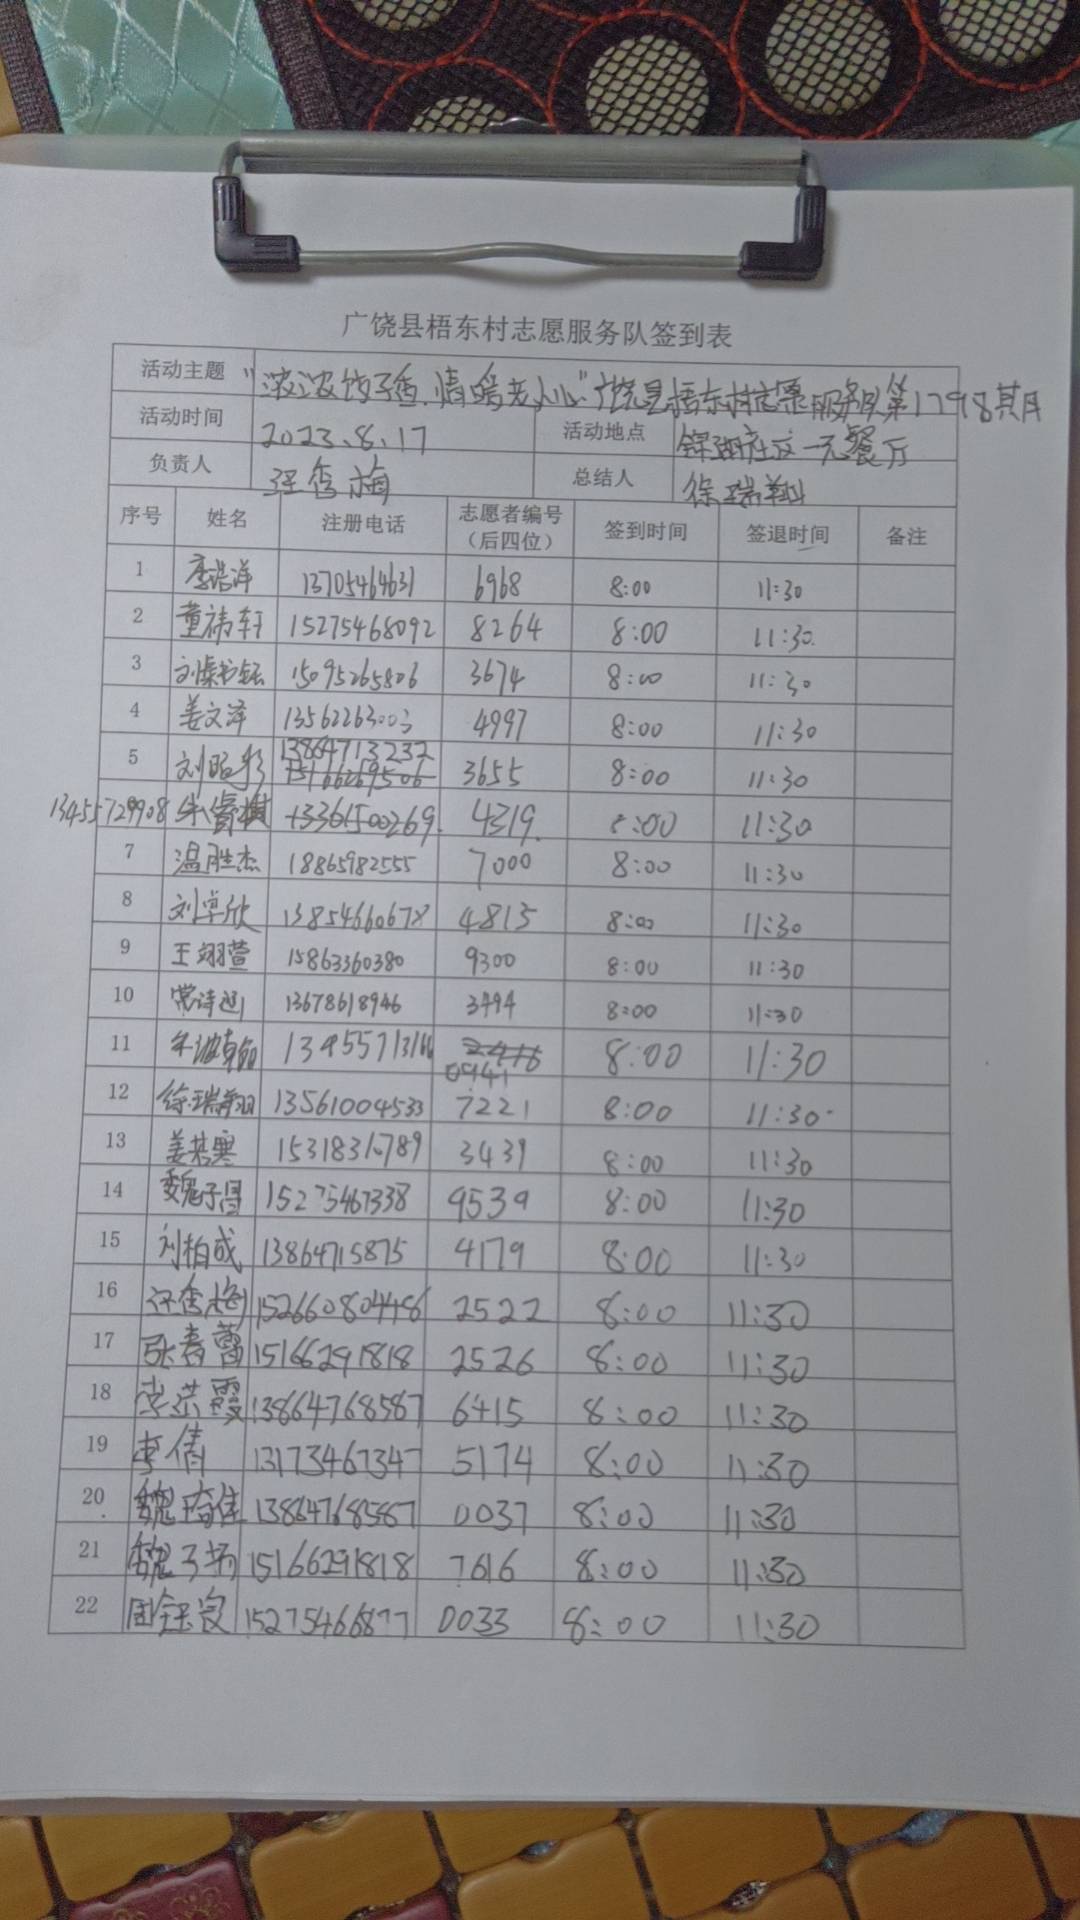 广饶县梧东村志愿服务队签到表
活动主题 "浓浓饺子香.情暖老人心"广饶县梧东村志愿服务队第1798期
活动时间 2023.8.17 活动地点 社区一元餐厅
负责人 汪秀梅 总结人 徐瑞翔
序号 姓名 注册电话 志愿者编号（后四位） 签到时间 签退时间 备注
1 李浩洋 13705464631 6968 8:00 11:30
2 董祎轩 15275468092 8264 8:00 11:30
3 15095265806 3674 8:00 11:30
4 姜文泽 13562263003 4997 8:00 11:30
5 刘昭彤 13864713232 15166269506 3655 8:00 11:30
13455729908 朱睿棋 13361500269 4319 8:00 11:30
7 温胜杰 18865982555 7000 8:00 11:30
8 刘卓欣 13854660678 4815 8:00 11:30
9 王翊萱 15863360380 9300 8:00 11:30
10 常诗 13678618946 3494 8:00 11:30
11 13455713166 2416 0941 8:00 11:30
12 徐瑞翔 13561004533 7221 8:00 11:30
13 姜若寒 15318310789 3439 8:00 11:30
14 魏子昌 15275467338 9539 8:00 11:30
15 刘柏成 13864715875 4179 8:00 11:30
16 汪秀梅 15266080448 2522 8:00 11:30
17 张春蕾 15166291818 2526 8:00 11:30
18 李洪霞 13864768587 6415 8:00 11:30
19 李倩 13173467347 5174 8:00 11:30
20 魏琦佳 13864768587 0037 8:00 11:30
21 魏子扬 15166291818 7616 8:00 11:30
22 15275466877 0033 8:00 11:30